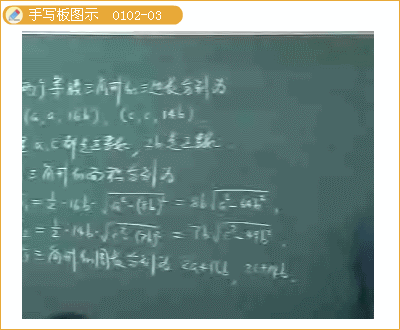 手写板图示 0102-03
两个等腰三角形的三边长分别为
(a, a, 16b), (c, c, 14b)
a, c都是正整数, 2b是正整数
三角形的面积分别为
= 1/2 · 16b · √(a² - (8b)²) = 8b√(a² - 64b²),
= 1/2 · 14b · √(c² - (7b)²) = 7b√(c² - 49b²),
三角形的周长分别为 2a+16b, 2c+14b.